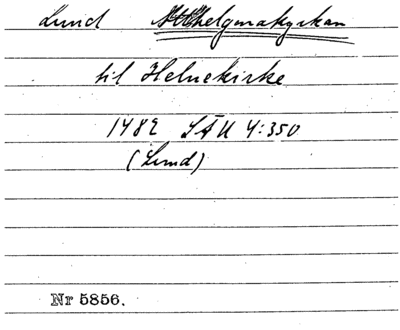 Lund Allhelgonakyrkan
til Helnekirke
1482 SÄU 4:350
(Lund)
Nr 5856.